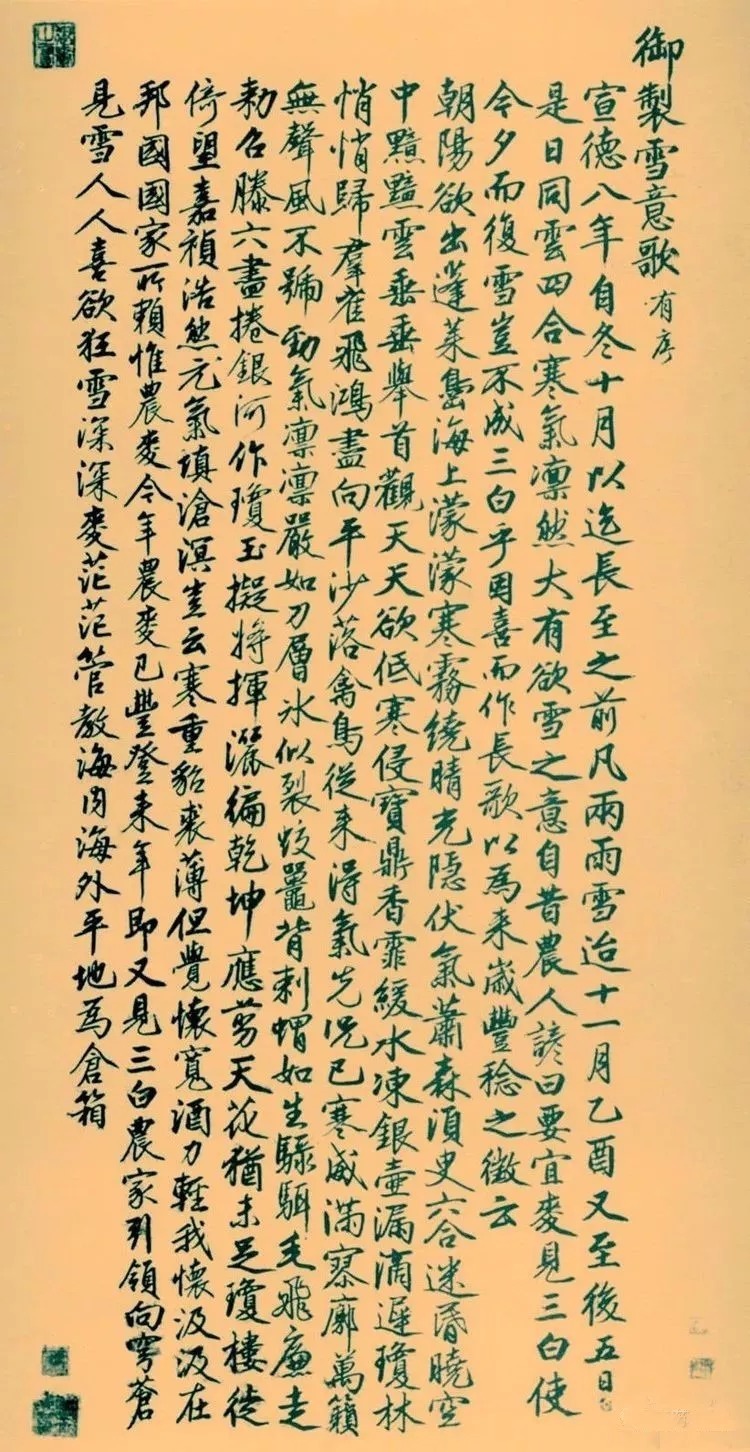 御製雪意歌 有序
宣德八年自冬十月以迄長至之前凡兩雨雪迨十一月乙酉又至後五日
是日同雲四合寒氣凛然大有欲雪之意自昔農人諺曰要宜麥見三白使
今夕而復雪豈不成三白乎因喜而作長歌以為来歲豐稔之徵云
朝陽欲出蓬莱島海上濛濛寒霧繞晴光隱伏氣蕭森湏臾六合迷昏曉空
中黯黯雲垂垂舉首觀天天欲低寒侵寶鼎香霏緩水凍銀壷漏滴遲瓊林
悄悄歸羣雀飛鴻盡向平沙落禽鳥從来得氣先况已寒威滿寥廓萬籟
無聲風不號勁氣凛凛嚴如刀層氷似裂蛟鼍背刺蝟如生騄駬毛飛廉走
勑召滕六盡捲銀河作瓊玉擬将揮灑徧乾坤應剪天花猶未足瓊樓徙
倚望嘉禎浩然元氣塡滄溟豈云寒重貂裘薄但覺懷寬酒力輕我懷汲汲在
邦國國家所賴惟農麥今年農麥已豐登来年即又見三白農家引領向穹蒼
見雪人人喜欲狂雪深深麥茫茫管教海内海外平地為倉箱